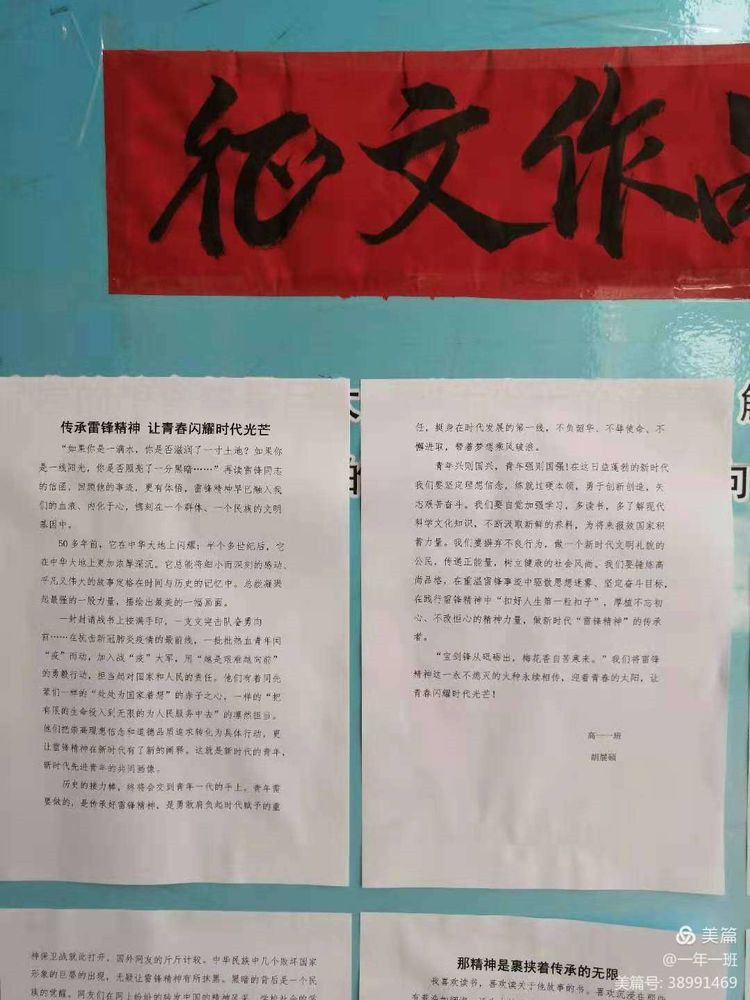 征文作品
传承雷锋精神 让青春闪耀时代光芒
“如果你是一滴水，你是否滋润了一寸土地？如果你
是一线阳光，你是否照亮了一分黑暗……”再读雷锋同志
的信函，回顾他的事迹，更有体悟，雷锋精神早已融入我
们的血液、内化于心，镌刻在一个群体、一个民族的文明
基因中。
50多年前，它在中华大地上闪耀；半个多世纪后，它
在中华大地上更加浓厚深沉。它总能将细小而深刻的感动、
平凡又伟大的故事定格在时间与历史的记忆中。总能凝聚
起最强的一股力量，描绘出最美的一幅画面。
一封封请战书上按满手印，一支支突击队奋勇向
前……在抗击新冠肺炎疫情的最前线，一批批热血青年闻
“疫”而动，加入战“疫”大军，用“越是艰难越向前”
的勇毅行动，担当起对国家和人民的责任。他们有着同先
辈们一样的“处处为国家着想”的赤子之心，一样的“把
有限的生命投入到无限的为人民服务中去”的凛然担当。
他们把崇高理想信念和道德品质追求转化为具体行动，更
让雷锋精神在新时代有了新的阐释。这就是新时代的青年，
新时代先进青年的共同画像。
历史的接力棒，终将会交到青年一代的手上。青年需
要做的，是传承好雷锋精神，是勇敢肩负起时代赋予的重
任，挺身在时代发展的第一线，不负韶华、不辱使命、不
懈进取，带着梦想乘风破浪。
青年兴则国兴，青年强则国强！在这日益蓬勃的新时代
我们要坚定理想信念，练就过硬本领，勇于创新创造，矢
志艰苦奋斗。我们要自觉加强学习，多读书，多了解现代
科学文化知识，不断汲取新鲜的养料，为将来报效国家积
蓄力量。我们要摒弃不良行为，做一个新时代文明礼貌的
公民，传递正能量，树立健康的社会风尚。我们要锤炼高
尚品格，在重温雷锋事迹中驱散思想迷雾、坚定奋斗目标，
在践行雷锋精神中“扣好人生第一粒扣子”，厚植不忘初
心、不改恒心的精神力量，做新时代“雷锋精神”的传承
者。
“宝剑锋从砥砺出，梅花香自苦寒来。”我们将雷锋
精神这一永不熄灭的火种永续相传，迎着青春的太阳，让
青春闪耀时代光芒！
高一一班
胡展硕
的
向
神保卫战就此打开，国外网友的斤斤计较。中华民族中几个败坏国家
形象的巨婴的出现，无疑让雷锋精神有所抹黑。黑暗的背后是一个民
族的觉醒。网友们在网上纷纷的转发中国的精神风采
那精神是裹挟着传承的无限
我喜欢读书，喜欢读关于他故事的书。喜欢沉浸在那
美篇
@一年一班
美篇号: 38991469